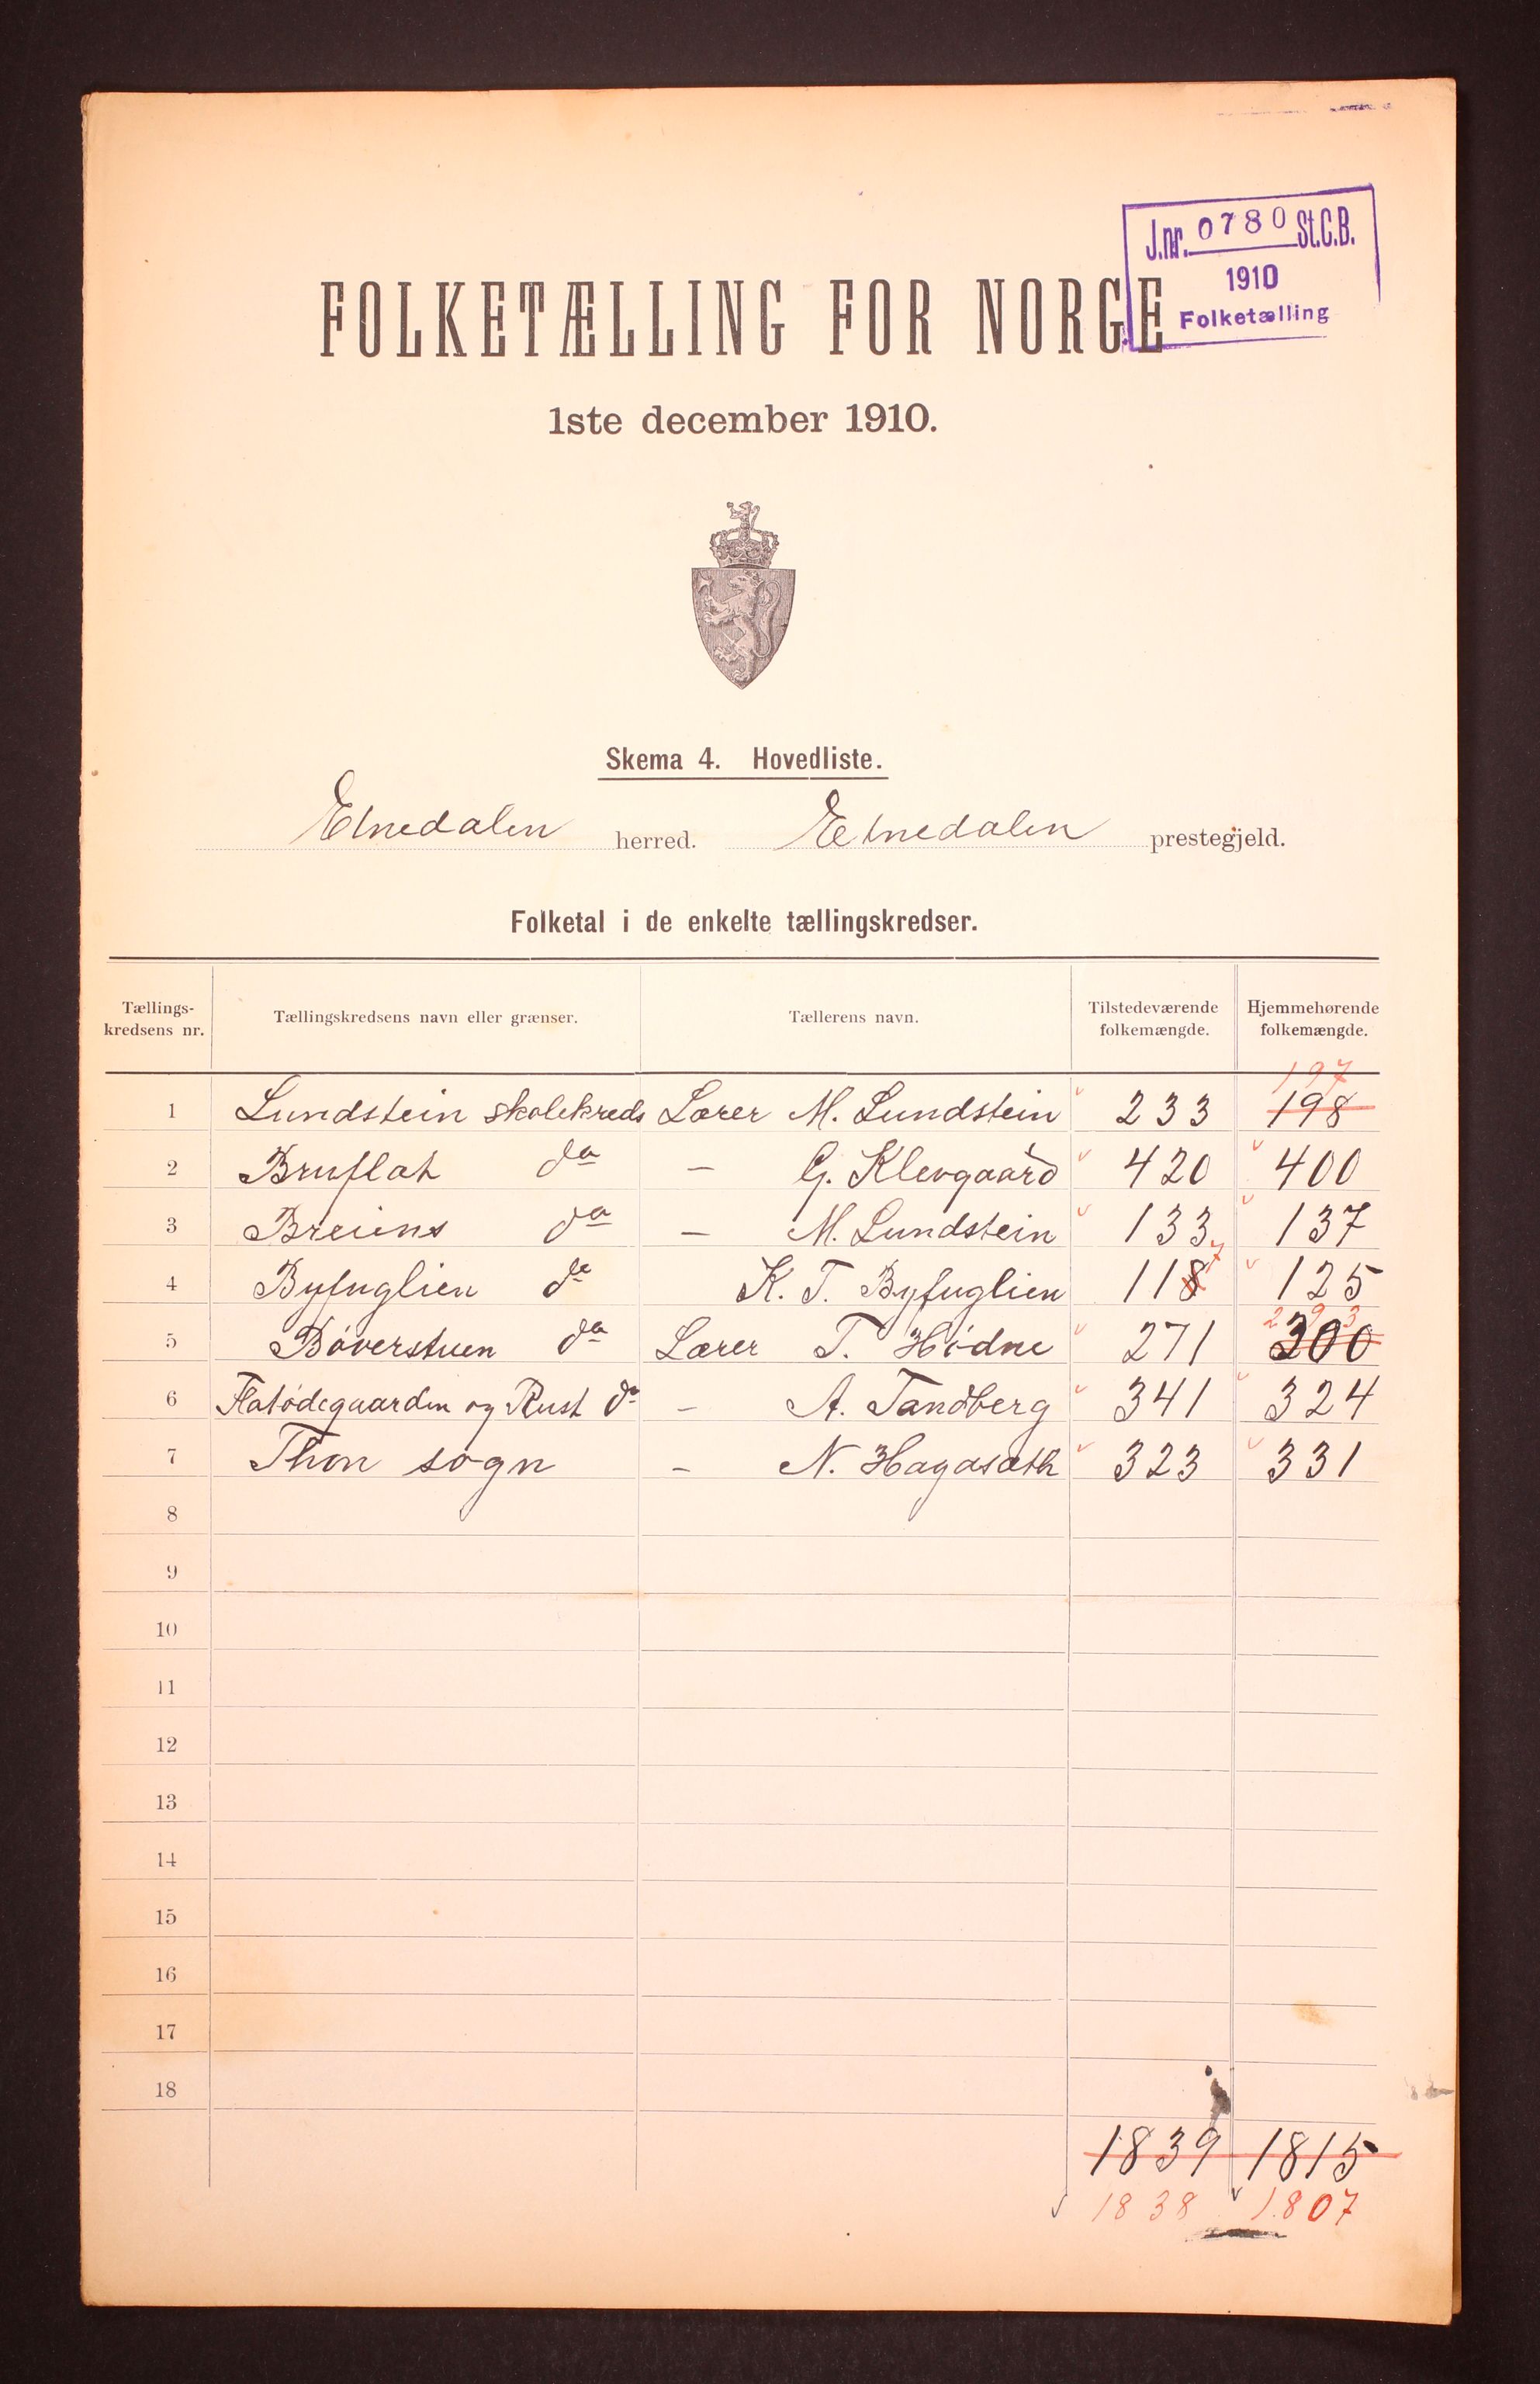 J.nr. 0780 St.C.B.
1910
Folketælling
FOLKETÆLLING FOR NORGE
1ste december 1910.
Skema 4. Hovedliste.
Etnedalen herred. Etnedalen prestegjeld.
Folketal i de enkelte tællingskredser.
Tællings-kredsens nr. Tællingskredsens navn eller grænser. Tællerens navn. Tilstedeværende folkemængde. Hjemmehørende folkemængde.
197
1 Lundstein skolekreds Lærer M. Lundstein 233 198
2 Bruflat do — G. Klevgaard 420 400
3 Breiens do — M. Lundstein 133 137
7
4 Byfuglien do K. T. Byfuglien 118 125
293
5 Bøverstuen do Lærer T. Hødne 271 300
6 Flatødegaarden og Rust do — A. Tandberg 341 324
7 Thon sogn — N. 323 331
8
9
10
11
12
13
14
15
16
17
18
1839 1815
1838 1807